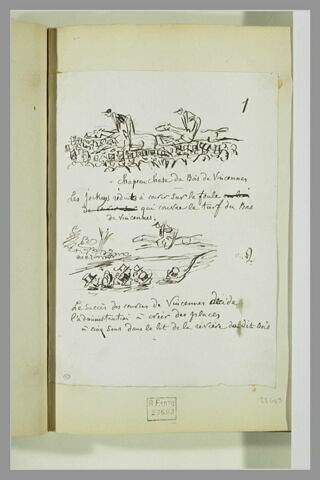 1
- Chapeau Chase du Bois de Vincennes
Les jockeys réduits à courir sur la foule
qui couvre le turf du Bois
de Vincennes.
2
Le succès des courses de Vincennes décide
l'administration à créer des places
à cinq sous dans le lit de la rivière du dit Bois
R.F. 
23643